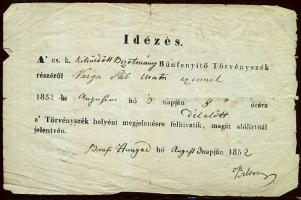 Idézés.
A' cs. k. kiküldött Bizottmány Bűnfenyitő Törvényszék
részéről Varga Pál Uram ezennel
1852 -ki Augustus hó 3 napján 8 órára
délelőtt
a' Törvényszék helyéni megjelenésre felhivatik, magát előlirtnál
jelentvén.
Hunyad hó August 3 napján 1852